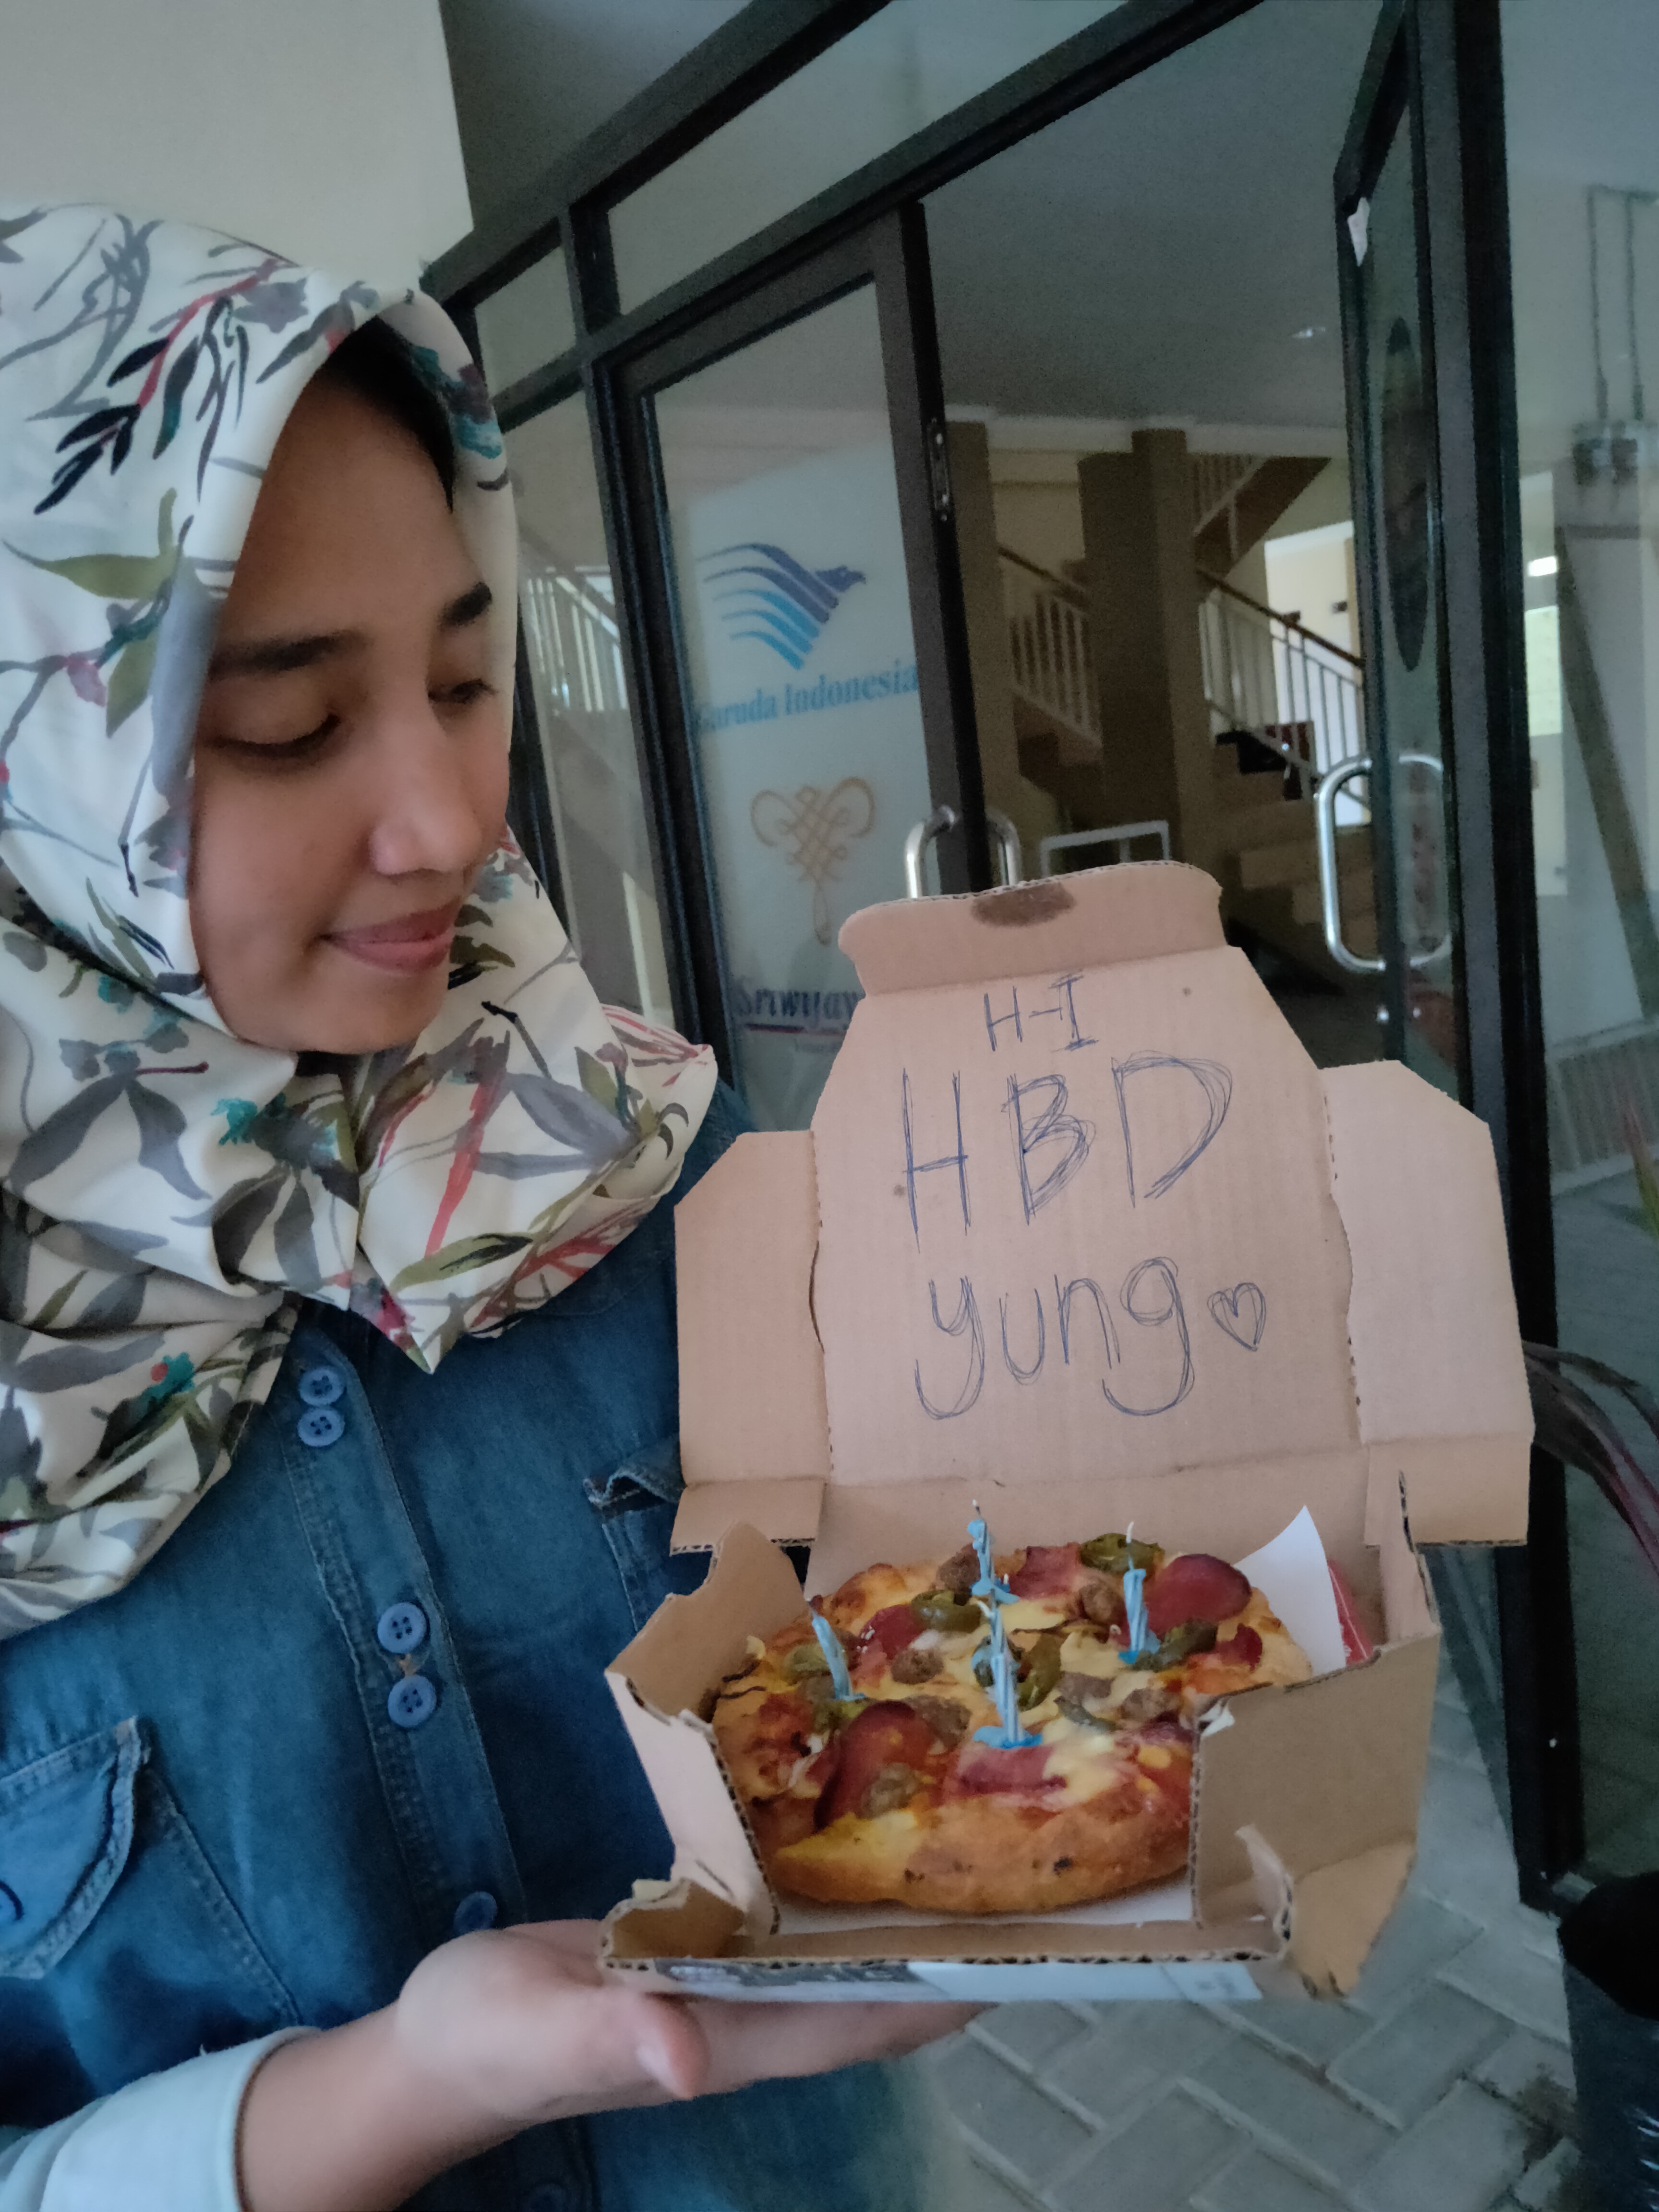 Garuda Indonesia
Sriwijaya
H-I
HBD
yung